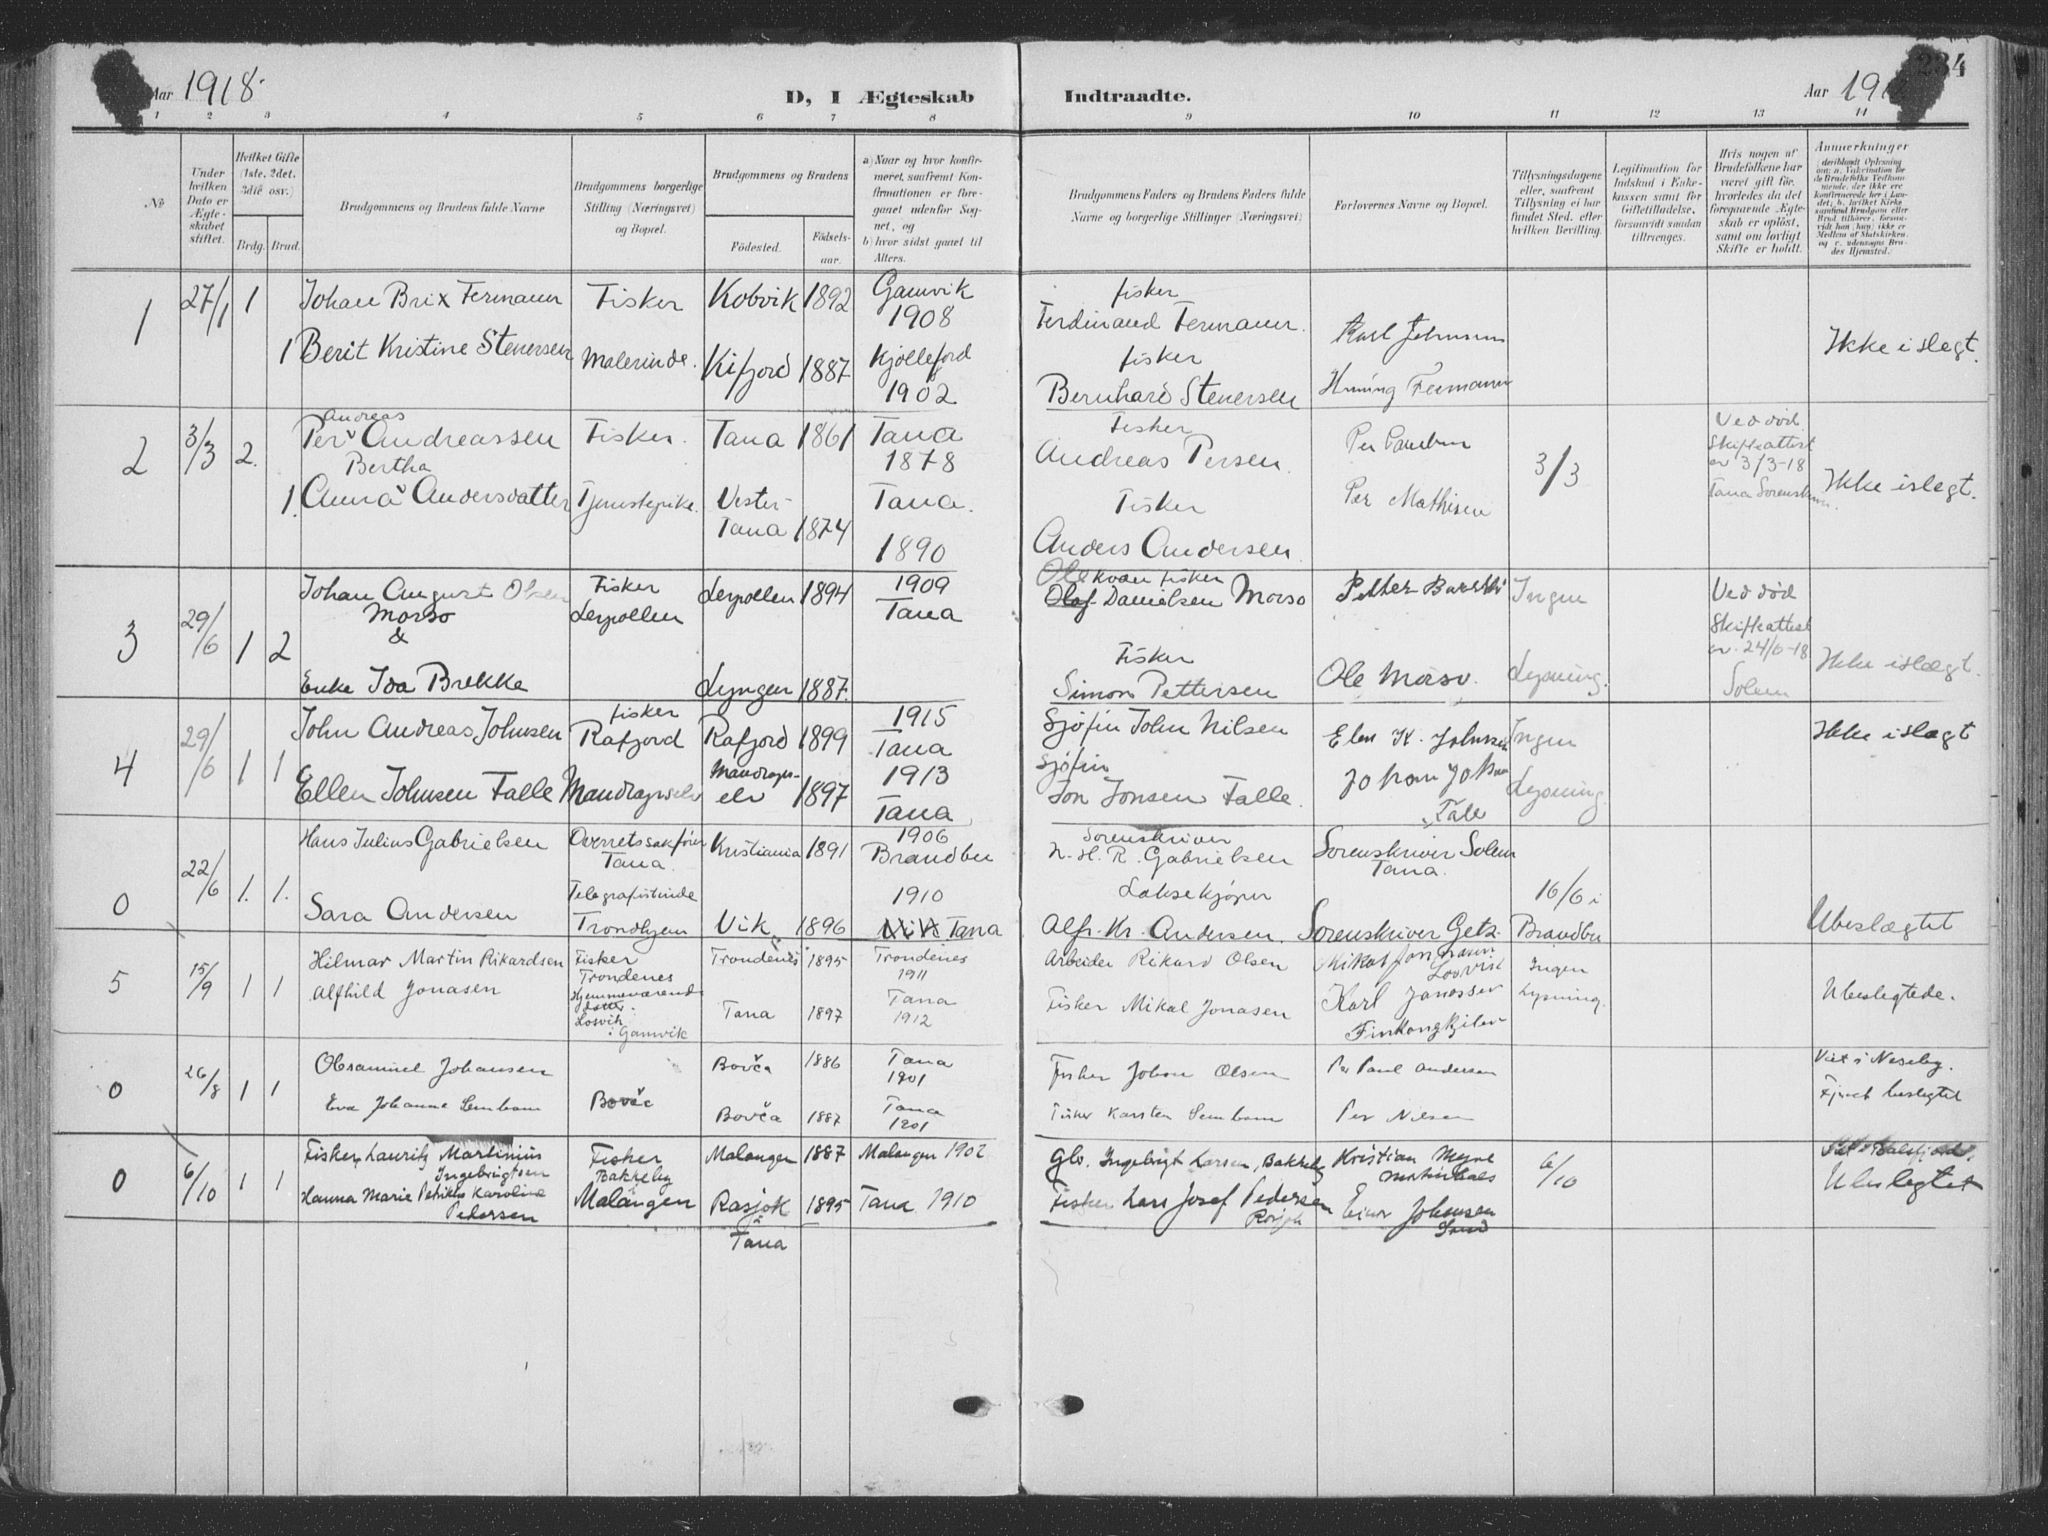 Aar 1918
D, I Ægteskab Indtraadte.
234
Aar 191
1 2 3 4 5 6 7 8 9 10 11 12 13 14
No
Under hvilken Dato er Ægteskabet stiftet.
Hvilket Gifte (1ste, 2det, 3die osv.)
Brdg. Brud.
Brudgommens og Brudens fulde Navne
Brudgommens borgerlige Stilling (Næringsvei) og Bopæl.
Brudgommens og Brudens
Fødested. Fødselsaar.
a) Naar og hvor konfirmeret, saafremt Konfirmationen er foregaaet udenfor Sognet, og
b) hvor sidst gaaet til Alters.
Brudgommens Faders og Brudens Faders fulde Navne og borgerlige Stillinger (Næringsvei)
Forlovernes Navne og Bopæl.
Tillysningsdagene eller, saafremt Tillysning ei har fundet Sted, efter hvilken Bevilling.
Legitimation for Indskud i Enkekassen samt for Giftetilladelse, forsaavidt saadan tiltrænges.
Hvis nogen af Brudefolkene har været gift før, hvorledes da det foregaaende Ægteskab er opløst, samt om lovligt Skifte er holdt.
Anmerkninger
1 27/1 1 Johan Brix Fermann Fisker Kobvik 1892 Gamvik 1908
fisker Ferdinand Fermann. Karl Johnsen
1 Berit Kristine Stenersen Malerinde. Kifjord 1887 Kjøllefjord 1902
fisker Bernhard Stenersen Hening Fermann
Ikke i slegt.
2 3/3 2. Per Andreas Andreassen Fisker. Tana 1861 Tana 1878
Fisker Andreas Persen. Per
1. Anna Bertha Andersdatter Tjenestepike. Vester-Tana 1874 Tana. 1890
Fisker Anders Andersen. Per Mathisen
3/3
Ved død. Skifteattest av 3/3-18 Tana Sorenskriv.
Ikke i slegt.
3 29/6 1 2 Johan August Olsen Morso & Fisker Leypollen Leypollen 1894 1909 Tana
Ole kvæn fisker Olaf Danielsen Morso Petter
Enke Ida Brekke Lyngen 1887.
Fisker Simon Pettersen Ole Morso.
Ingen Lysning.
Ved død Skifteattest av. 24/6-18 Solem
Ikke i slægt.
4 29/6 1 1 John Andreas Johnsen fisker Rafjord Rafjord 1899 1915 Tana
Sjøfin John Nilsen Elen K. Johnsen
Ellen Johnsen Falle Mandragselv Mandragselv 1897 1913 Tana
Sjøfin Jon Jonsen Falle. Johan Johan Tale
Ingen Lysning.
Ikke i slægt
0 22/6 1. 1. Hans Julius Gabrielsen Overretssakfører Tana. Kristiania 1891 1906 Brandbu
Sorenskriver N. H. R. Gabrielsen Sorenskriver Solem Tana.
Sara Andersen Telegrafistinde Trondhjem Vik 1896 1910 Vik Tana
Laksekjøper Alfr. Kr. Andersen. Sorenskriver Getz.
16/6 i Brandbu
Ubeslægtet
5 15/9 1 1 Hilmar Martin Rikardsen Fisker Trondenes Trondenes 1895 Trondenes 1911
Arbeider Rikard Olsen Mikal
Alfhild Jonasen Hjemmeværende Losvik i Gamvik Tana 1897 Tana 1912
Fisker Mikal Jonasen Karl Janossen Finkongkjilen
Ingen Lysning.
Ubeslegtede.
0 26/8 1 1 Olesamuel Johansen Bovča 1886 Tana 1901
Fisker Johan Olsen Per Paul Andersen
Eva Johanne Bovča Bovča 1887 Tana 1901
Fisker Karsten Per Nilsen
Viet i Neseby.
Fjernt beslegtet
0 6/10 1 1 Fisker Lauritz Martinius Ingebrigtsen Fisker Bakkeby Malangen Malangen 1887 Malangen 1902
Gbr. Ingebrigt Larsen, Bakkeby Kristian Myre
Hanna Marie Petrikke Karoline Pedersen Rasjok Tana 1895 Tana 1910
Fisker Lars Josef Pedersen Einar Johansen
6/10
Ubeslegtet